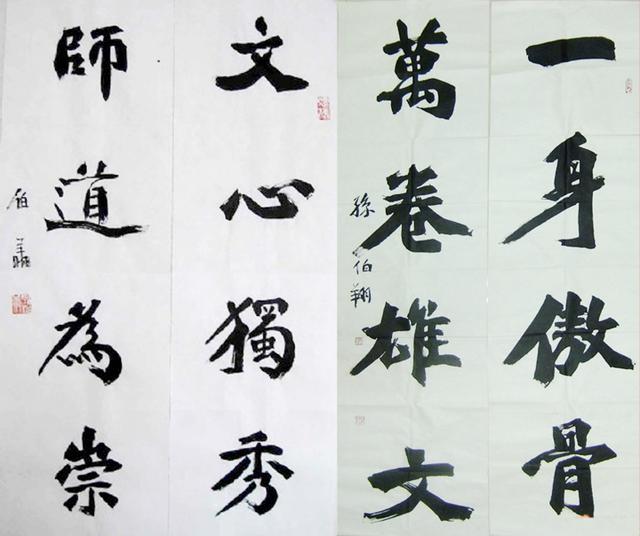 一身傲骨
萬卷雄文
孫伯翔
文心獨秀
師道為崇
伯翔